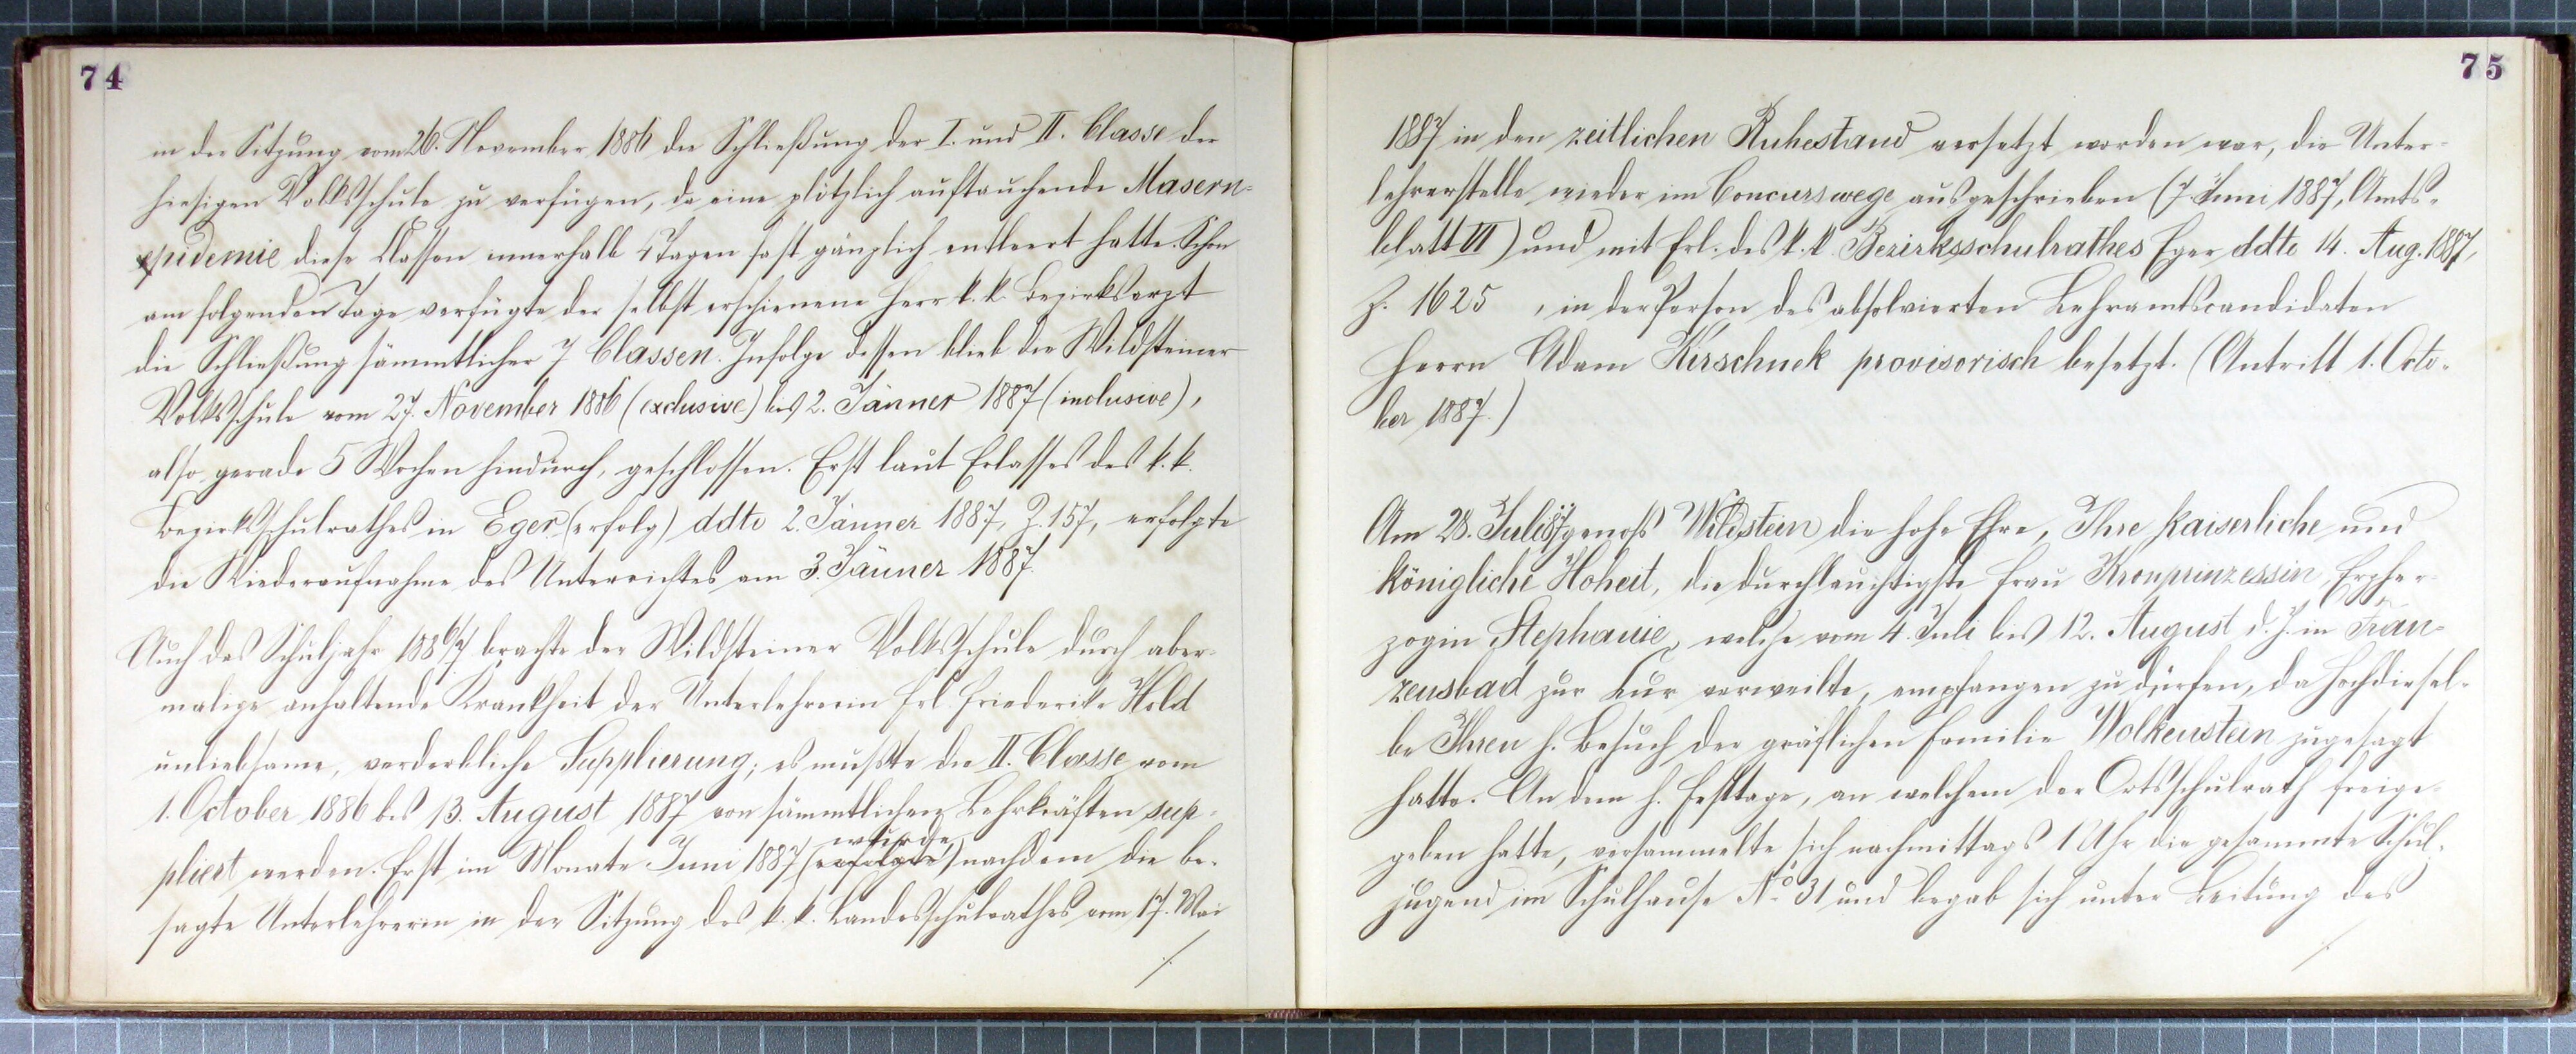 74
in der Sitzung vom 26. November 1886 die Schließung der I. und II. Classe der
hiesigen Volksschule zu verfügen, da eine plötzlich auftauchende Masern-
epidemie diese Classen innerhalb 4 Tagen fast gänzlich entleert hatte. Schon
am folgenden Tage verfügte der selbst erschienene Herr k. k. Bezirksarzt
die Schließung sämmtlicher 7 Classen. Infolge dessen blieb die Wildsteiner
Volksschule vom 27. November 1886 (exclusive) bis 2. Jänner 1887 (inclusive),
also gerade 5 Wochen hindurch, geschlossen. Erst laut Erlasses des k. k.
Bezirksschulrathes in Eger (erfolg) ddto 2. Jänner 1887, Z. 157, erfolgte
die Wiederaufnahme des Unterrichtes am 3. Jänner 1887.
Auch das Schuljahr 1886/7 brachte der Wildsteiner Volksschule durch aber-
malige anhaltende Krankheit der Unterlehrerin Frl. Friederike Held
unliebsame, verderbliche Supplierung; es mußte die II. Classe vom
1. October 1886 bis 13. August 1887 von sämmtlichen Lehrkräften sup-
wurde
pliert werden. Erst im Monate Juni 1887 (erfolgte) nachdem die be-
sagte Unterlehrerin in der Sitzung des k. k. Landesschulrathes vom 17. Mai
./.
75
1887 in den zeitlichen Ruhestand versetzt worden war, die Unter-
lehrerstelle wieder im Concurswege ausgeschrieben (7. Juni 1887, Amts-
blatt VI) und mit Erl. des k. k. Bezirksschulrathes Eger ddto 14. Aug. 1887,
Z. 1625, in der Person des absolvierten Lehramtscandidaten
Herrn Adam Kirschnek provisorisch besetzt. (Antritt 1. Octo-
ber 1887.)
Am 28. Juli 87 genoß Wildstein die hohe Ehre, Ihre kaiserliche und
königliche Hoheit, die durchlauchtigste Frau Kronprinzessin, Erzher-
zogin Stephanie, welche vom 4. Juli bis 12. August d. J. in Fran-
zensbad zur Cur verweilte, empfangen zu dürfen, da Hochdiesel-
be Ihren h. Besuch der gräflichen Familie Wolkenstein zugesagt
hatte. An dem h. Festtage, an welchem der Ortsschulrath freige-
geben hatte, versammelte sich nachmittags 1 Uhr die gesammte Schul-
jugend im Schulhause No 31 und begab sich unter Leitung des
./.